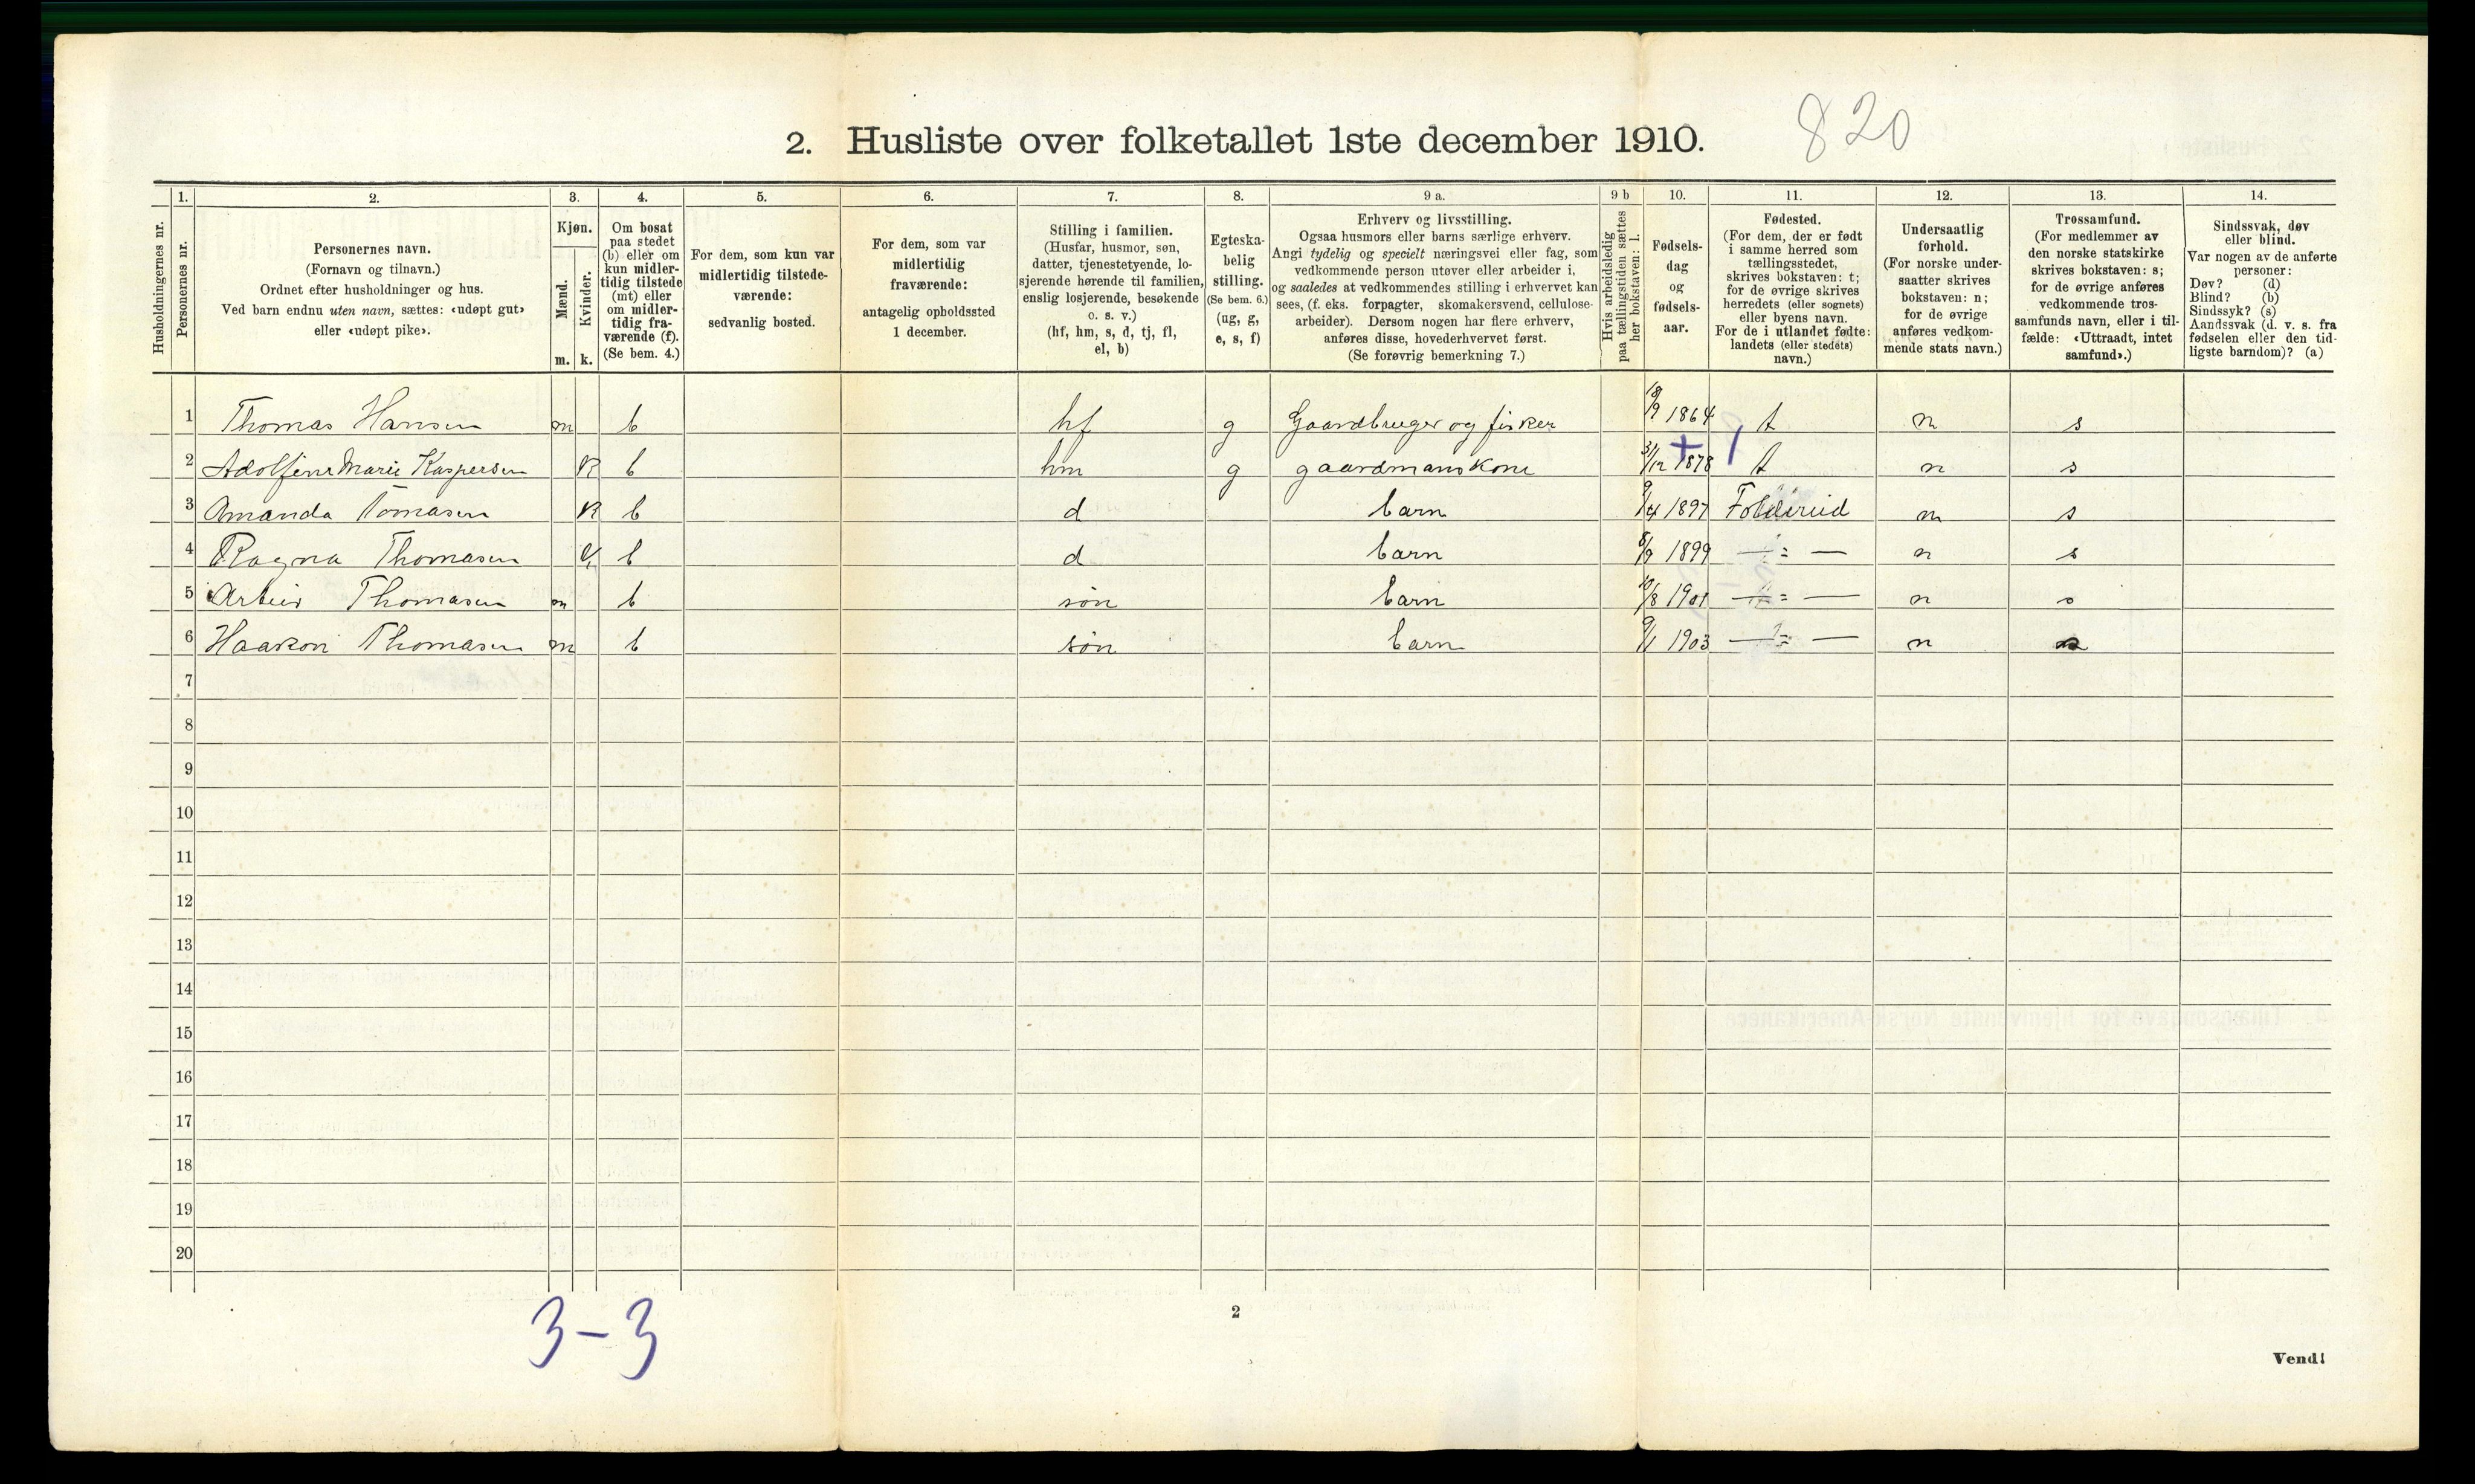 2. Husliste over folketallet 1ste december 1910. 820
1. 2. 3. 4. 5. 6. 7. 8. 9 a. 9 b 10. 11. 12. 13. 14.
Husholdningernes nr.
Personernes nr.
Personernes navn.
(Fornavn og tilnavn.)
Ordnet efter husholdninger og hus.
Ved barn endnu uten navn, sættes: «udøpt gut»
eller «udøpt pike».
Kjøn.
Mænd.
Kvinder.
m. k.
Om bosat
paa stedet
(b) eller om
kun midler-
tidig tilstede
(mt) eller
om midler-
tidig fra-
værende (f).
(Se bem. 4.)
For dem, som kun var
midlertidig tilstede-
værende:
sedvanlig bosted.
For dem, som var
midlertidig
fraværende:
antagelig opholdssted
1 december.
Stilling i familien.
(Husfar, husmor, søn,
datter, tjenestetyende, lo-
sjerende hørende til familien,
enslig losjerende, besøkende
o. s. v.)
(hf, hm, s, d, tj, fl,
el, b)
Egteska-
belig
stilling.
(Se bem. 6.)
(ug, g,
e, s, f)
Erhverv og livsstilling.
Ogsaa husmors eller barns særlige erhverv.
Angi tydelig og specielt næringsvei eller fag, som
vedkommende person utøver eller arbeider i,
og saaledes at vedkommendes stilling i erhvervet kan
sees, (f. eks. forpagter, skomakersvend, cellulose-
arbeider). Dersom nogen har flere erhverv,
anføres disse, hovederhvervet først.
(Se forøvrig bemerkning 7.)
Hvis arbeidsledig
paa tællingstiden sættes
her bokstaven: l.
Fødsels-
dag
og
fødsels-
aar.
Fødested.
(For dem, der er født
i samme herred som
tællingsstedet,
skrives bokstaven: t;
for de øvrige skrives
herredets (eller sognets)
eller byens navn.
For de i utlandet fødte:
landets (eller stedets)
navn.)
Undersaatlig
forhold.
(For norske under-
saatter skrives
bokstaven: n;
for de øvrige
anføres vedkom-
mende stats navn.)
Trossamfund.
(For medlemmer av
den norske statskirke
skrives bokstaven: s;
for de øvrige anføres
vedkommende tros-
samfunds navn, eller i til-
fælde: «Uttraadt, intet
samfund».)
Sindssvak, døv
eller blind.
Var nogen av de anførte
personer:
Døv? (d)
Blind? (b)
Sindssyk? (s)
Aandssvak (d. v. s. fra
fødselen eller den tid-
ligste barndom)? (a)
1 Thomas Hansen m b hf g Gaardbruger og fisker 18/9 1864 t n s
+ 1
2 Adolfine Marie Kaspersen k b hm g gaardmanskone 31/12 1878 t n s
3 Amanda Tomasen k b d barn 9/4 1897 Foldereid n s
4 Ragna Thomasen k b d barn 8/9 1899 — = — n s
5 Thomasen m b søn barn 10/8 1901 — = — n s
6 Haakon Thomasen m b søn barn 9/1 1903 — = — n s
7
8
9
10
11
12
13
14
15
16
17
18
19
20
3-3
2
Vend!